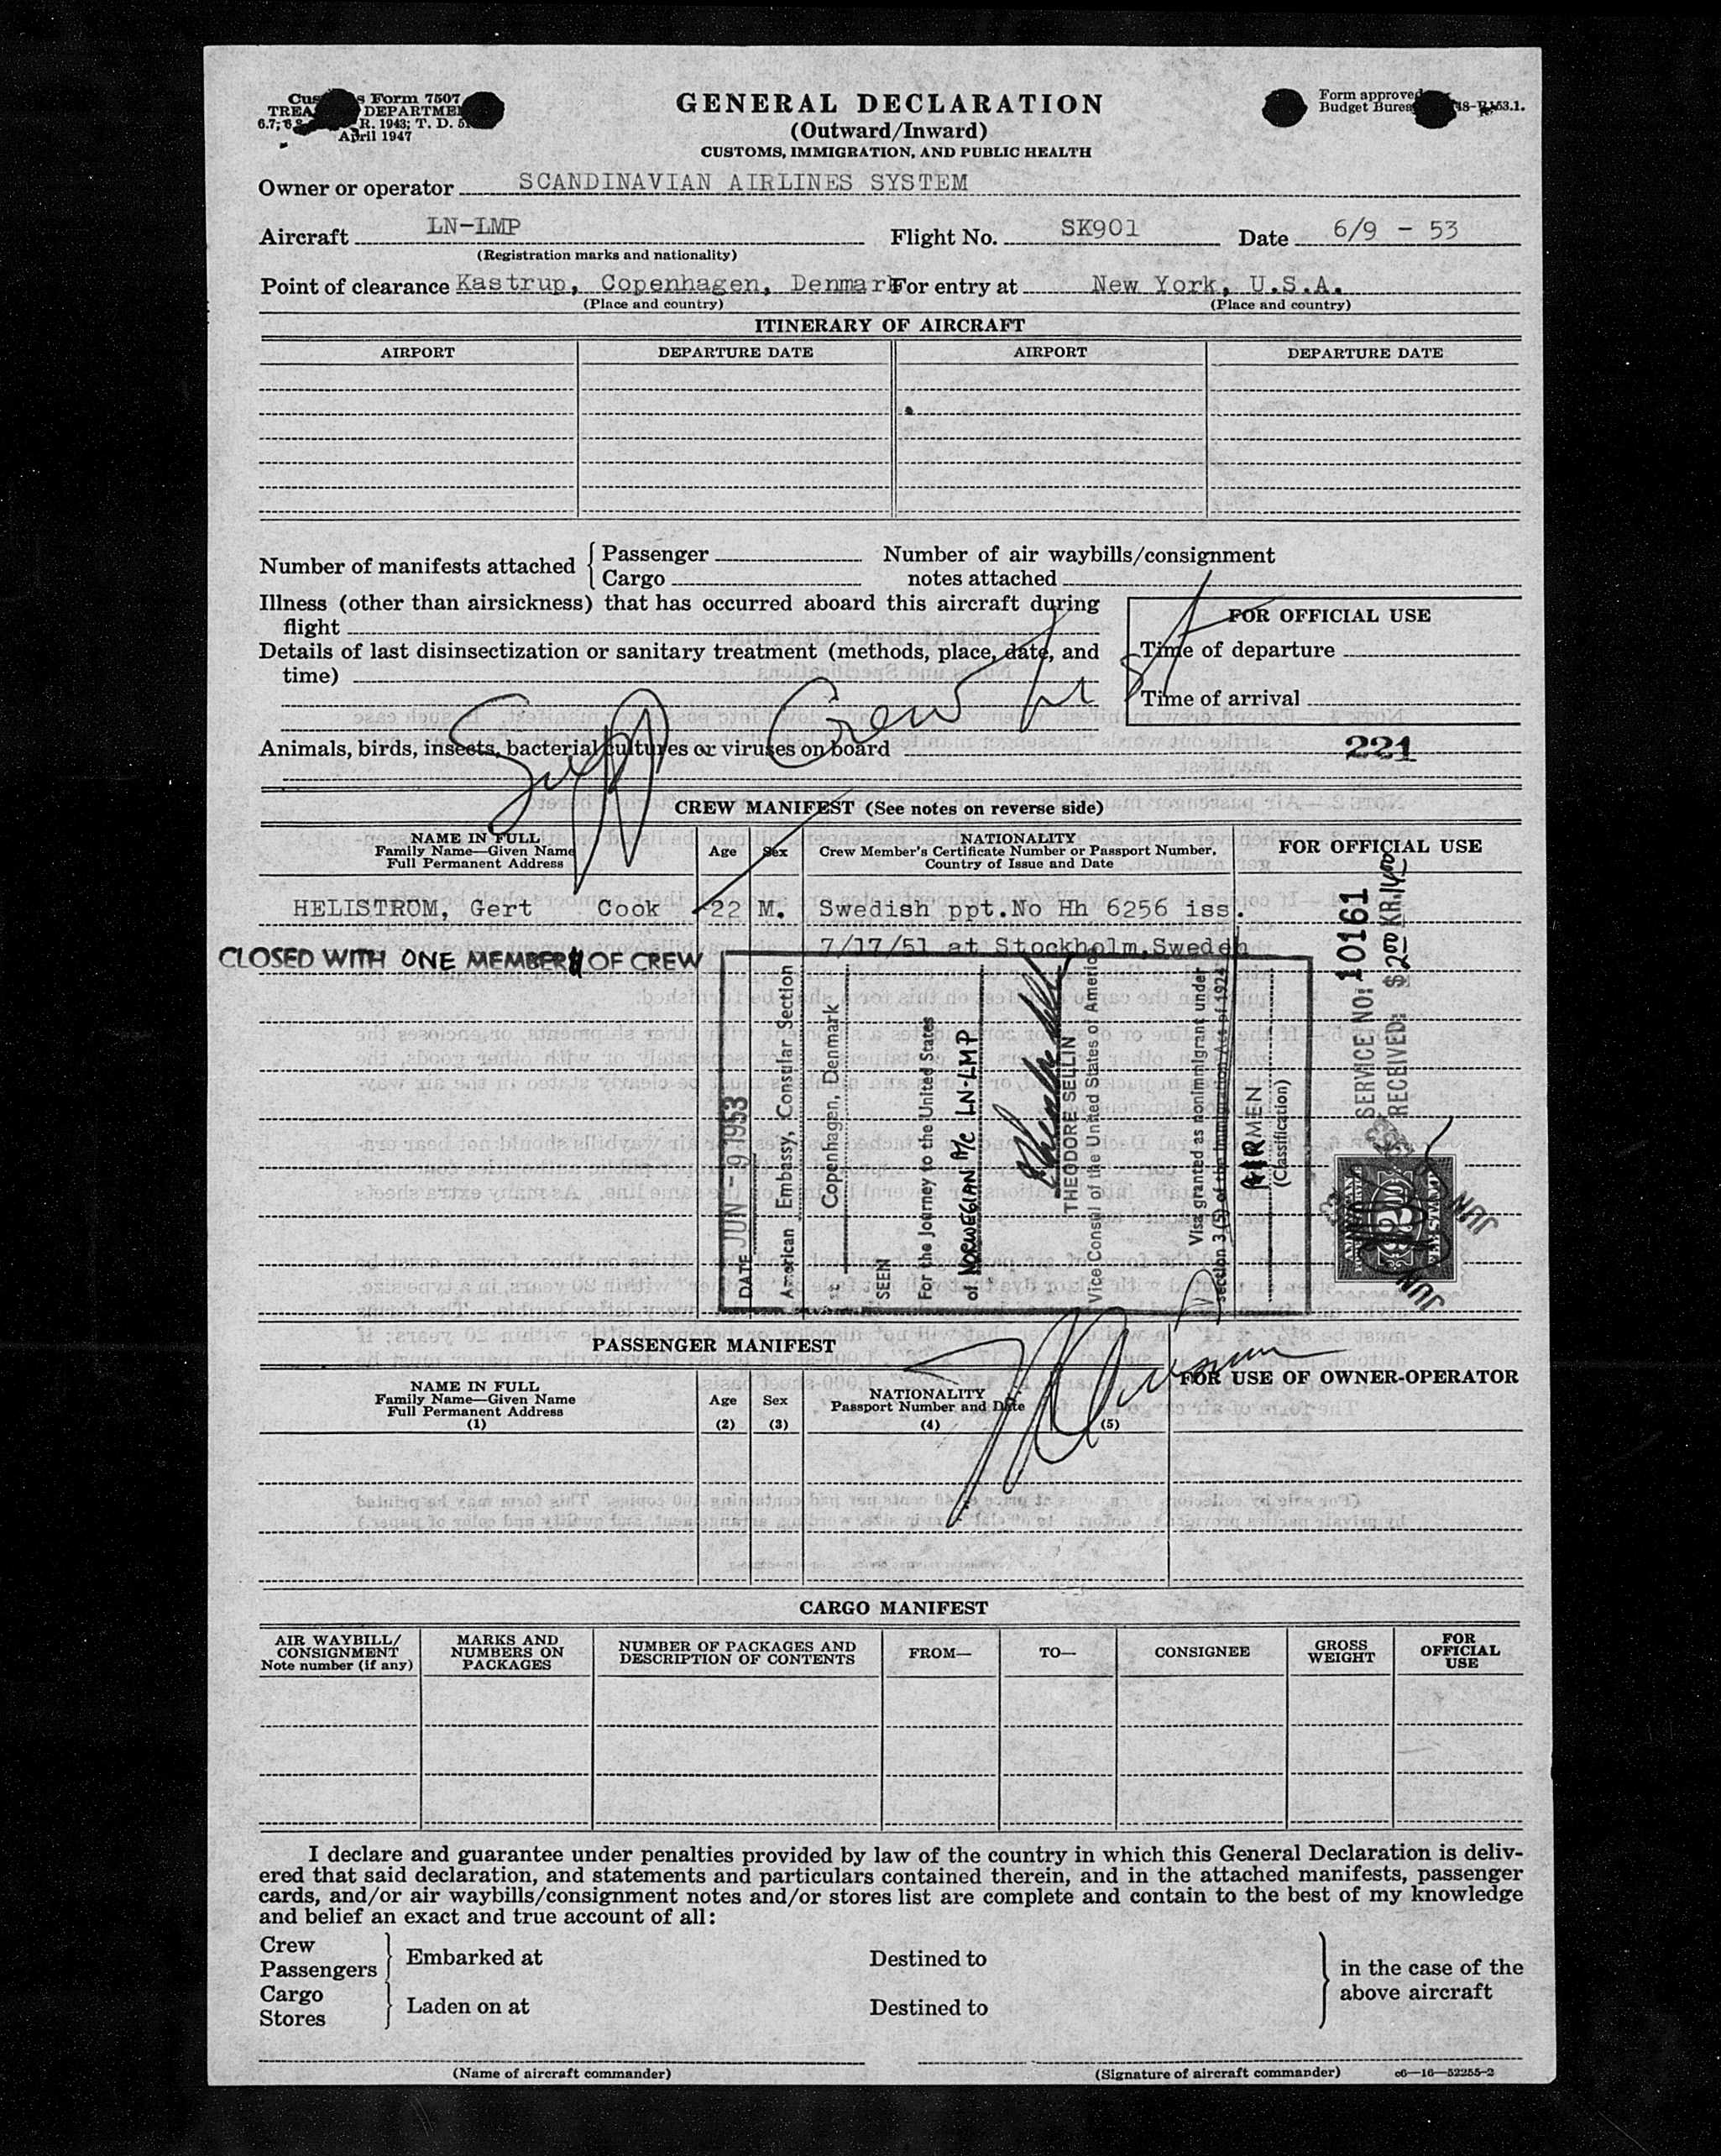 Customs Form 7507
TREASURY DEPARTMENT
R. 1943; T. D.
April 1947
GENERAL DECLARATION
(Outward/Inward)
CUSTOMS, IMMIGRATION, AND PUBLIC HEALTH
Form approved
Budget Bureau
Owner or operator SCANDINAVIAN AIRLINES SYSTEM
Aircraft LN-LMP Flight No. SK901 Date 6/9 - 53
(Registration marks and nationality)
Point of clearance Kastrup, Copenhagen, Denmark For entry at New York, U.S.A.
(Place and country) (Place and country)
ITINERARY OF AIRCRAFT
AIRPORT DEPARTURE DATE AIRPORT DEPARTURE DATE
Number of manifests attached { Passenger Number of air waybills/consignment
Cargo notes attached
Illness (other than airsickness) that has occurred aboard this aircraft during
flight
FOR OFFICIAL USE
Details of last disinsectization or sanitary treatment (methods, place, date, and
time)
Time of departure
Time of arrival
Supp Crew list
Animals, birds, insects, bacterial cultures or viruses on board
221
CREW MANIFEST (See notes on reverse side)
NAME IN FULL
Family Name—Given Name
Full Permanent Address
Age
Sex
NATIONALITY
Crew Member's Certificate Number or Passport Number,
Country of Issue and Date
FOR OFFICIAL USE
HELISTROM, Gert Cook 22 M. Swedish ppt.No Hh 6256 iss.
7/17/51 at Stockholm,Sweden
CLOSED WITH ONE MEMBER OF CREW
DATE JUN - 9 1953
American Embassy, Consular Section
at Copenhagen, Denmark
SEEN
For the Journey to the United States
of NORWEGIAN A/c LN-LMP
THEODORE SELLIN
Vice Consul of the United States of America
Visa granted as nonimmigrant under
section 3 (5) of the Immigration Act of 1924
AIRMEN
(Classification)
SERVICE NO: 10161
RECEIVED: $ 200 KR.14.00
JUN
JUN
PASSENGER MANIFEST
NAME IN FULL
Family Name—Given Name
Full Permanent Address
(1)
Age
(2)
Sex
(3)
NATIONALITY
Passport Number and Date
(4)
(5)
FOR USE OF OWNER-OPERATOR
CARGO MANIFEST
AIR WAYBILL/
CONSIGNMENT
Note number (if any)
MARKS AND
NUMBERS ON
PACKAGES
NUMBER OF PACKAGES AND
DESCRIPTION OF CONTENTS
FROM—
TO—
CONSIGNEE
GROSS
WEIGHT
FOR
OFFICIAL
USE
I declare and guarantee under penalties provided by law of the country in which this General Declaration is deliv-
ered that said declaration, and statements and particulars contained therein, and in the attached manifests, passenger
cards, and/or air waybills/consignment notes and/or stores list are complete and contain to the best of my knowledge
and belief an exact and true account of all:
Crew
Passengers } Embarked at Destined to
Cargo
Stores } Laden on at Destined to
} in the case of the
above aircraft
(Name of aircraft commander) (Signature of aircraft commander) c6—16—52255-2